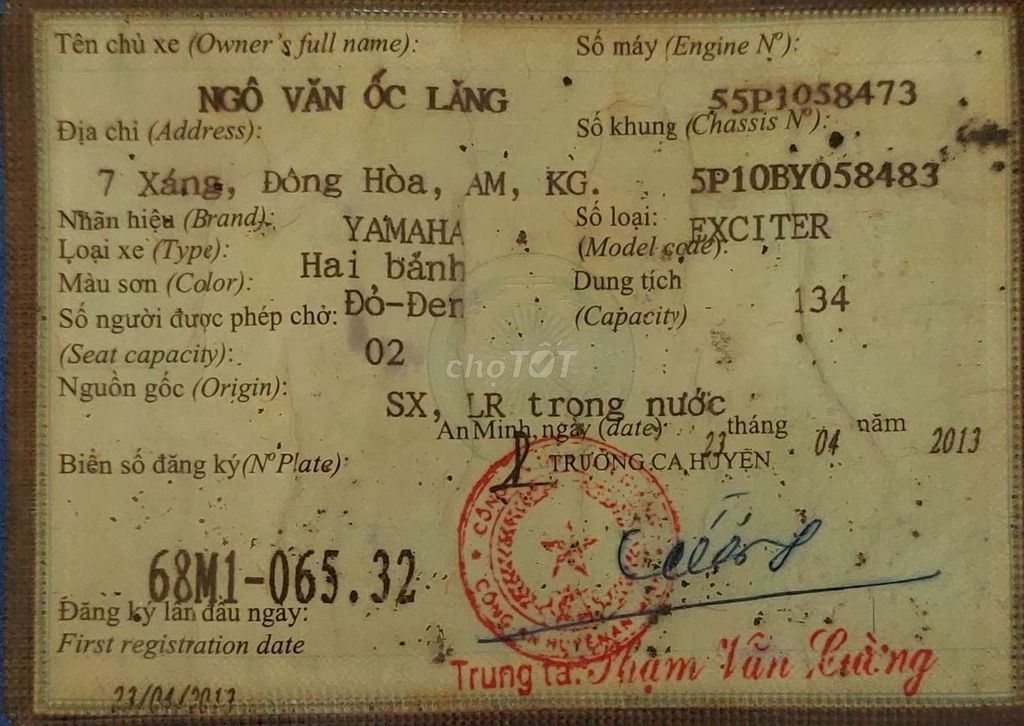 Tên chủ xe (Owner's full name):
NGÔ VĂN ỐC LĂNG
Địa chỉ (Address):
7 Xáng, Đông Hòa, AM, KG.
Số máy (Engine Nº):
55P1058473
Số khung (Chassis Nº):
5P10BY058483
Nhãn hiệu (Brand):
YAMAHA
Số loại:
EXCITER
(Model code):
Loại xe (Type):
Hai bánh
Màu sơn (Color):
Đỏ-Đen
Dung tích
134
(Capacity)
Số người được phép chở:
02
(Seat capacity):
Nguồn gốc (Origin):
SX, LR trong nước
chợTỐT
An Minh, ngày (date): 23 tháng 04 năm 2013
TRƯỞNG CA HUYỆN
Biển số đăng ký(NºPlate):
68M1-065.32
Đăng ký lần đầu ngày:
First registration date
23/04/2013
Trung tá: Phạm Văn Cường